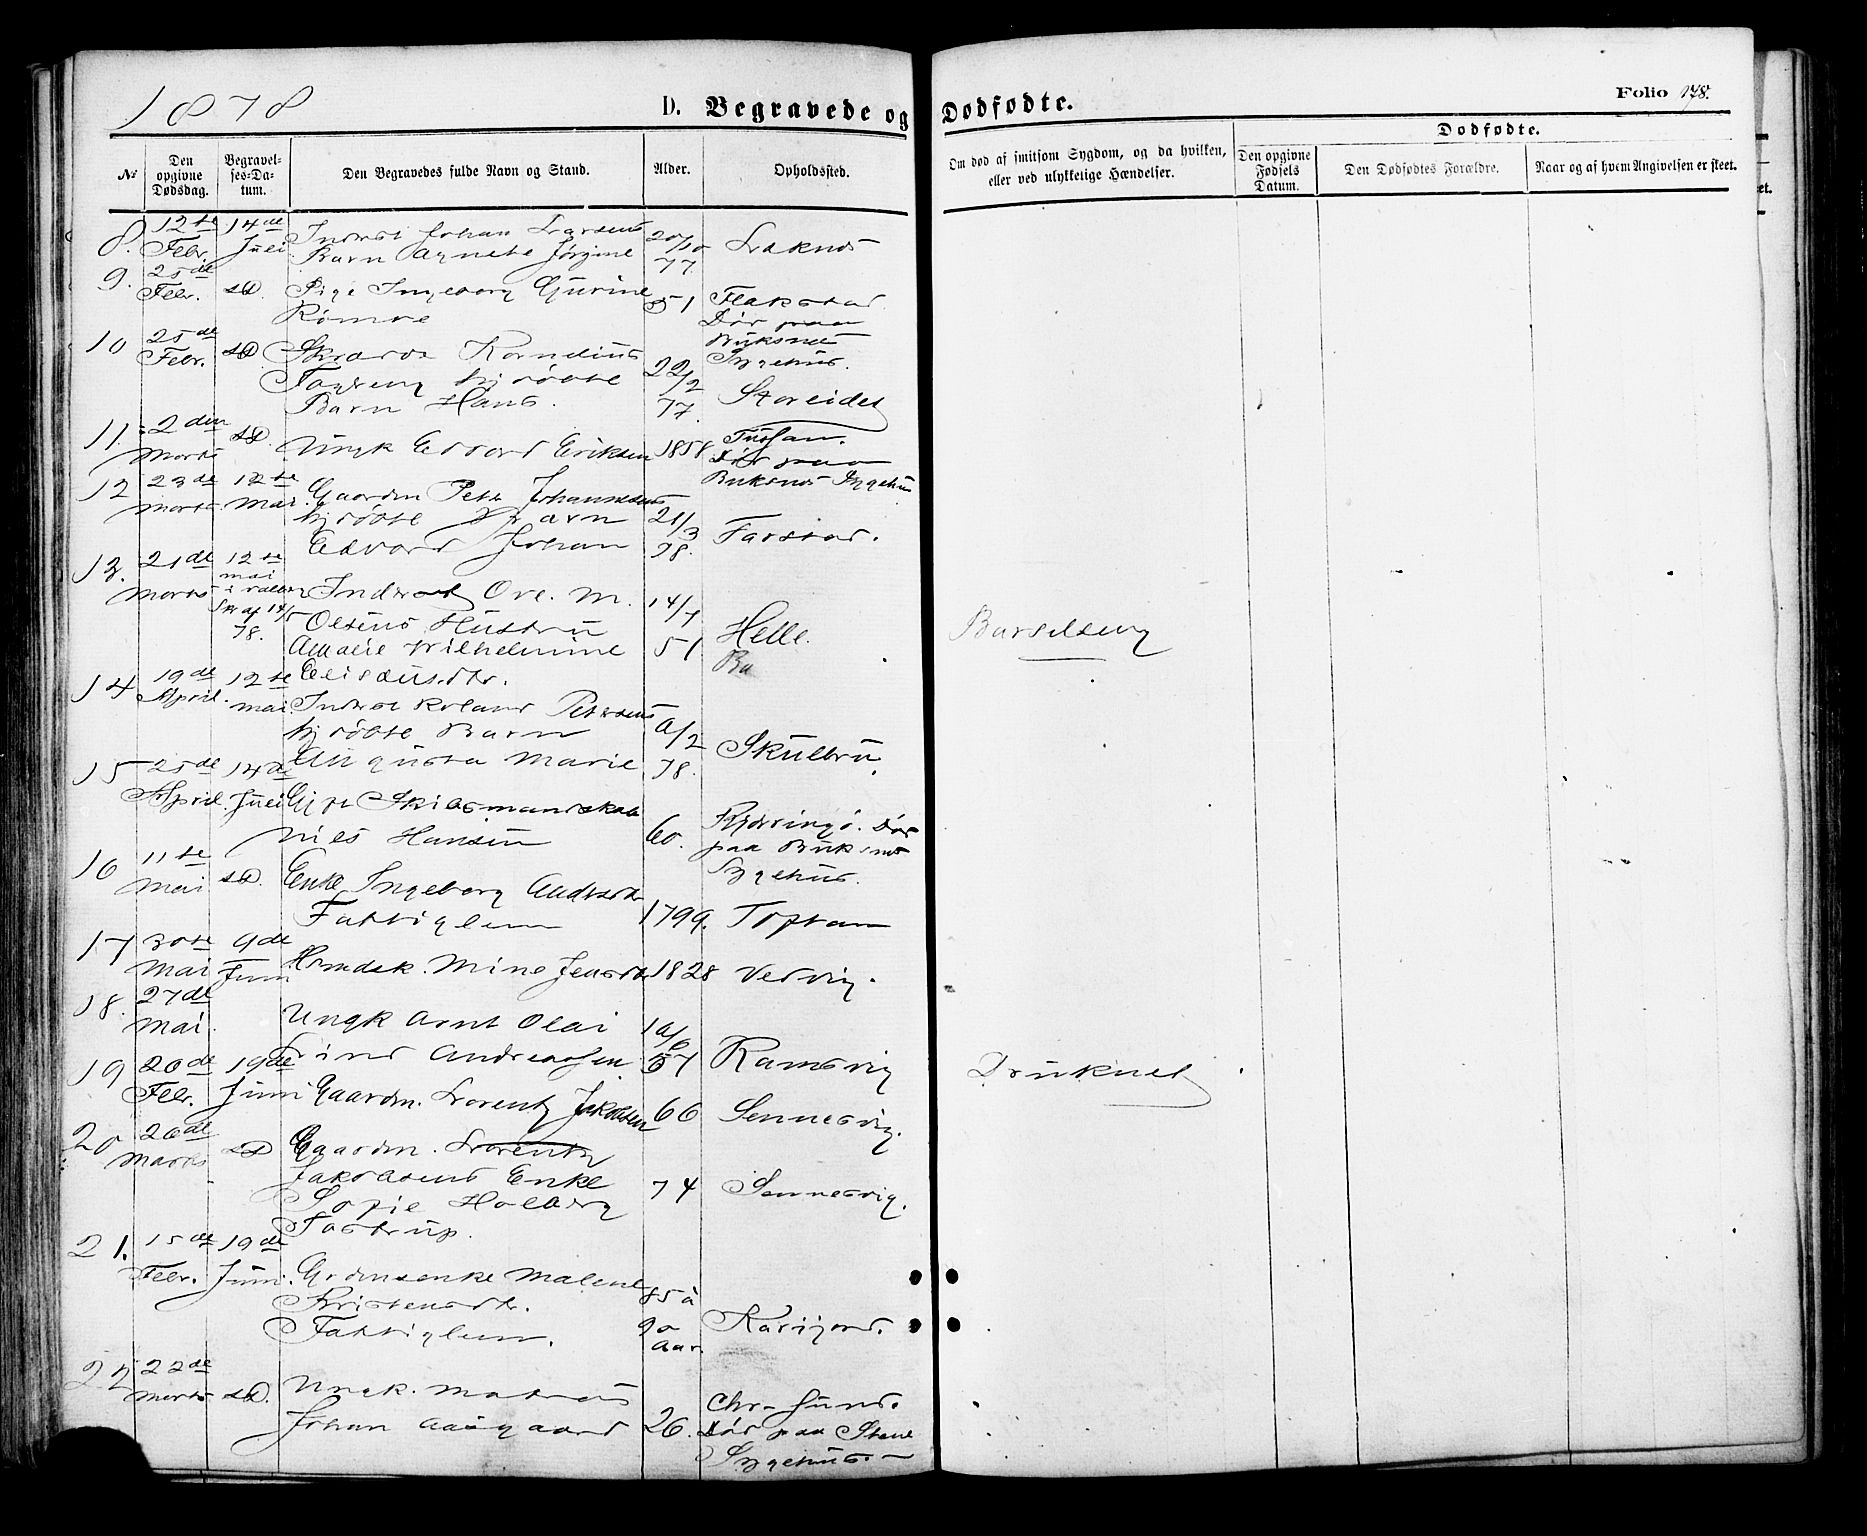 1878
D. Begravede og Dødfødte.
Folio 178.
№
Den opgivne Dødsdag.
Begravelses-Datum.
Den Begravedes fulde Navn og Stand.
Alder.
Opholdssted.
Om død af smitsom Sygdom, og da hvilken, eller ved ulykkelige Hændelser.
Dødfødte.
Den opgivne Fødsels Datum.
Den Dødfødtes Forældre.
Naar og af hvem Angivelsen er skeet.
8. 12te Febr. 14de Juli Inderst Johan Larsens
Barn Agnete Jørgine 20/10 77 Leknes
9. 25de Febr. sD. Pige Ingeborg Gurine 51 Flakstad
Død paa Buksnes Sygehus.
10 25de Febr. sD. Kornelius
hjdøbte
Barn Hans. 22/2 77 Storeidet
11. 2den Marts sD. Ungk Edvard Eriksen 1858
Død paa Buksnes Sygehus
12 23de Marts 12te Mai Gaardm Peter Johannesens
hjdøbte Barn
Edvard Johan 21/3 78. Farstad.
13. 21de Marts 12te Mai
Inderst Ove. M.
Olsens Hustru
Amalie Wilhelmine
Eliseusdtr. 14/7 51 Helle. Barselseng
14 19de April. 12te Mai Inderst Roland Petersens
hjdøbte Barn
Augusta Marie 9/2 78. Skulbru
15 25de April. 14de Juli Gift Skibsmandskab
Nils Hansen 60. Kjerringø. Død
paa Buksnes
Sygehus.
16 11te Mai sD. Enke Ingeborg Andersdtr
Fattiglem 1799. Toppan
17 30te Mai 9de Juni Mine Jensdtr 1828 Vedvig.
18. 27de Mai. Ungk Arnt Olai
Andreassen 19/6 57 Ramsvig Druknet
19 20de Febr. 19de Juni Gaardm. Lorentz Jakobsen 66 Sennesvig.
20 26de Marts sD Gaardm. Lorentz
Jakobsens Enke
Sofie Holberg
Tostrup. 74 Sennesvig.
21. 15de Febr. 19de Juni. Grdmsenke Malene
Kristensdtr.
Fattiglem. 85 à 90 Aar.
22 22de Marts sD. Ungk. Mateus
Johan Aasgaard 26. Chr. Sund.
Død paa Stene
Sygehus.